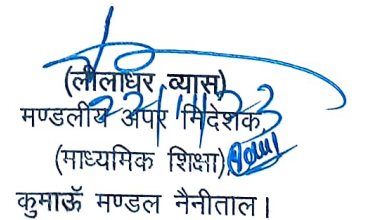 (लीलाधर व्यास)
22/11/23
मण्डलीय अपर निदेशक,
(माध्यमिक शिक्षा),
कुमाऊँ मण्डल नैनीताल।